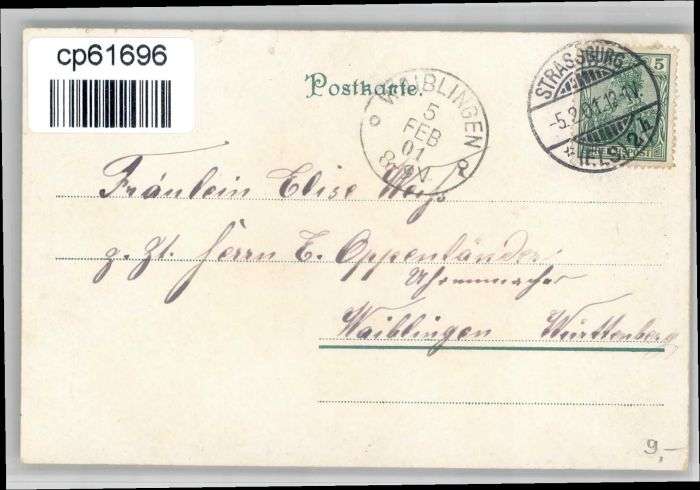 cp61696
Postkarte.
WAIBLINGEN
5
FEB
01
STRASSBURG
-5.2.01.12-1V.
5
Fräulein Elise
z. Zt. Herrn E. Oppenländer
Uhrenmacher
Waiblingen Württenberg
9,-